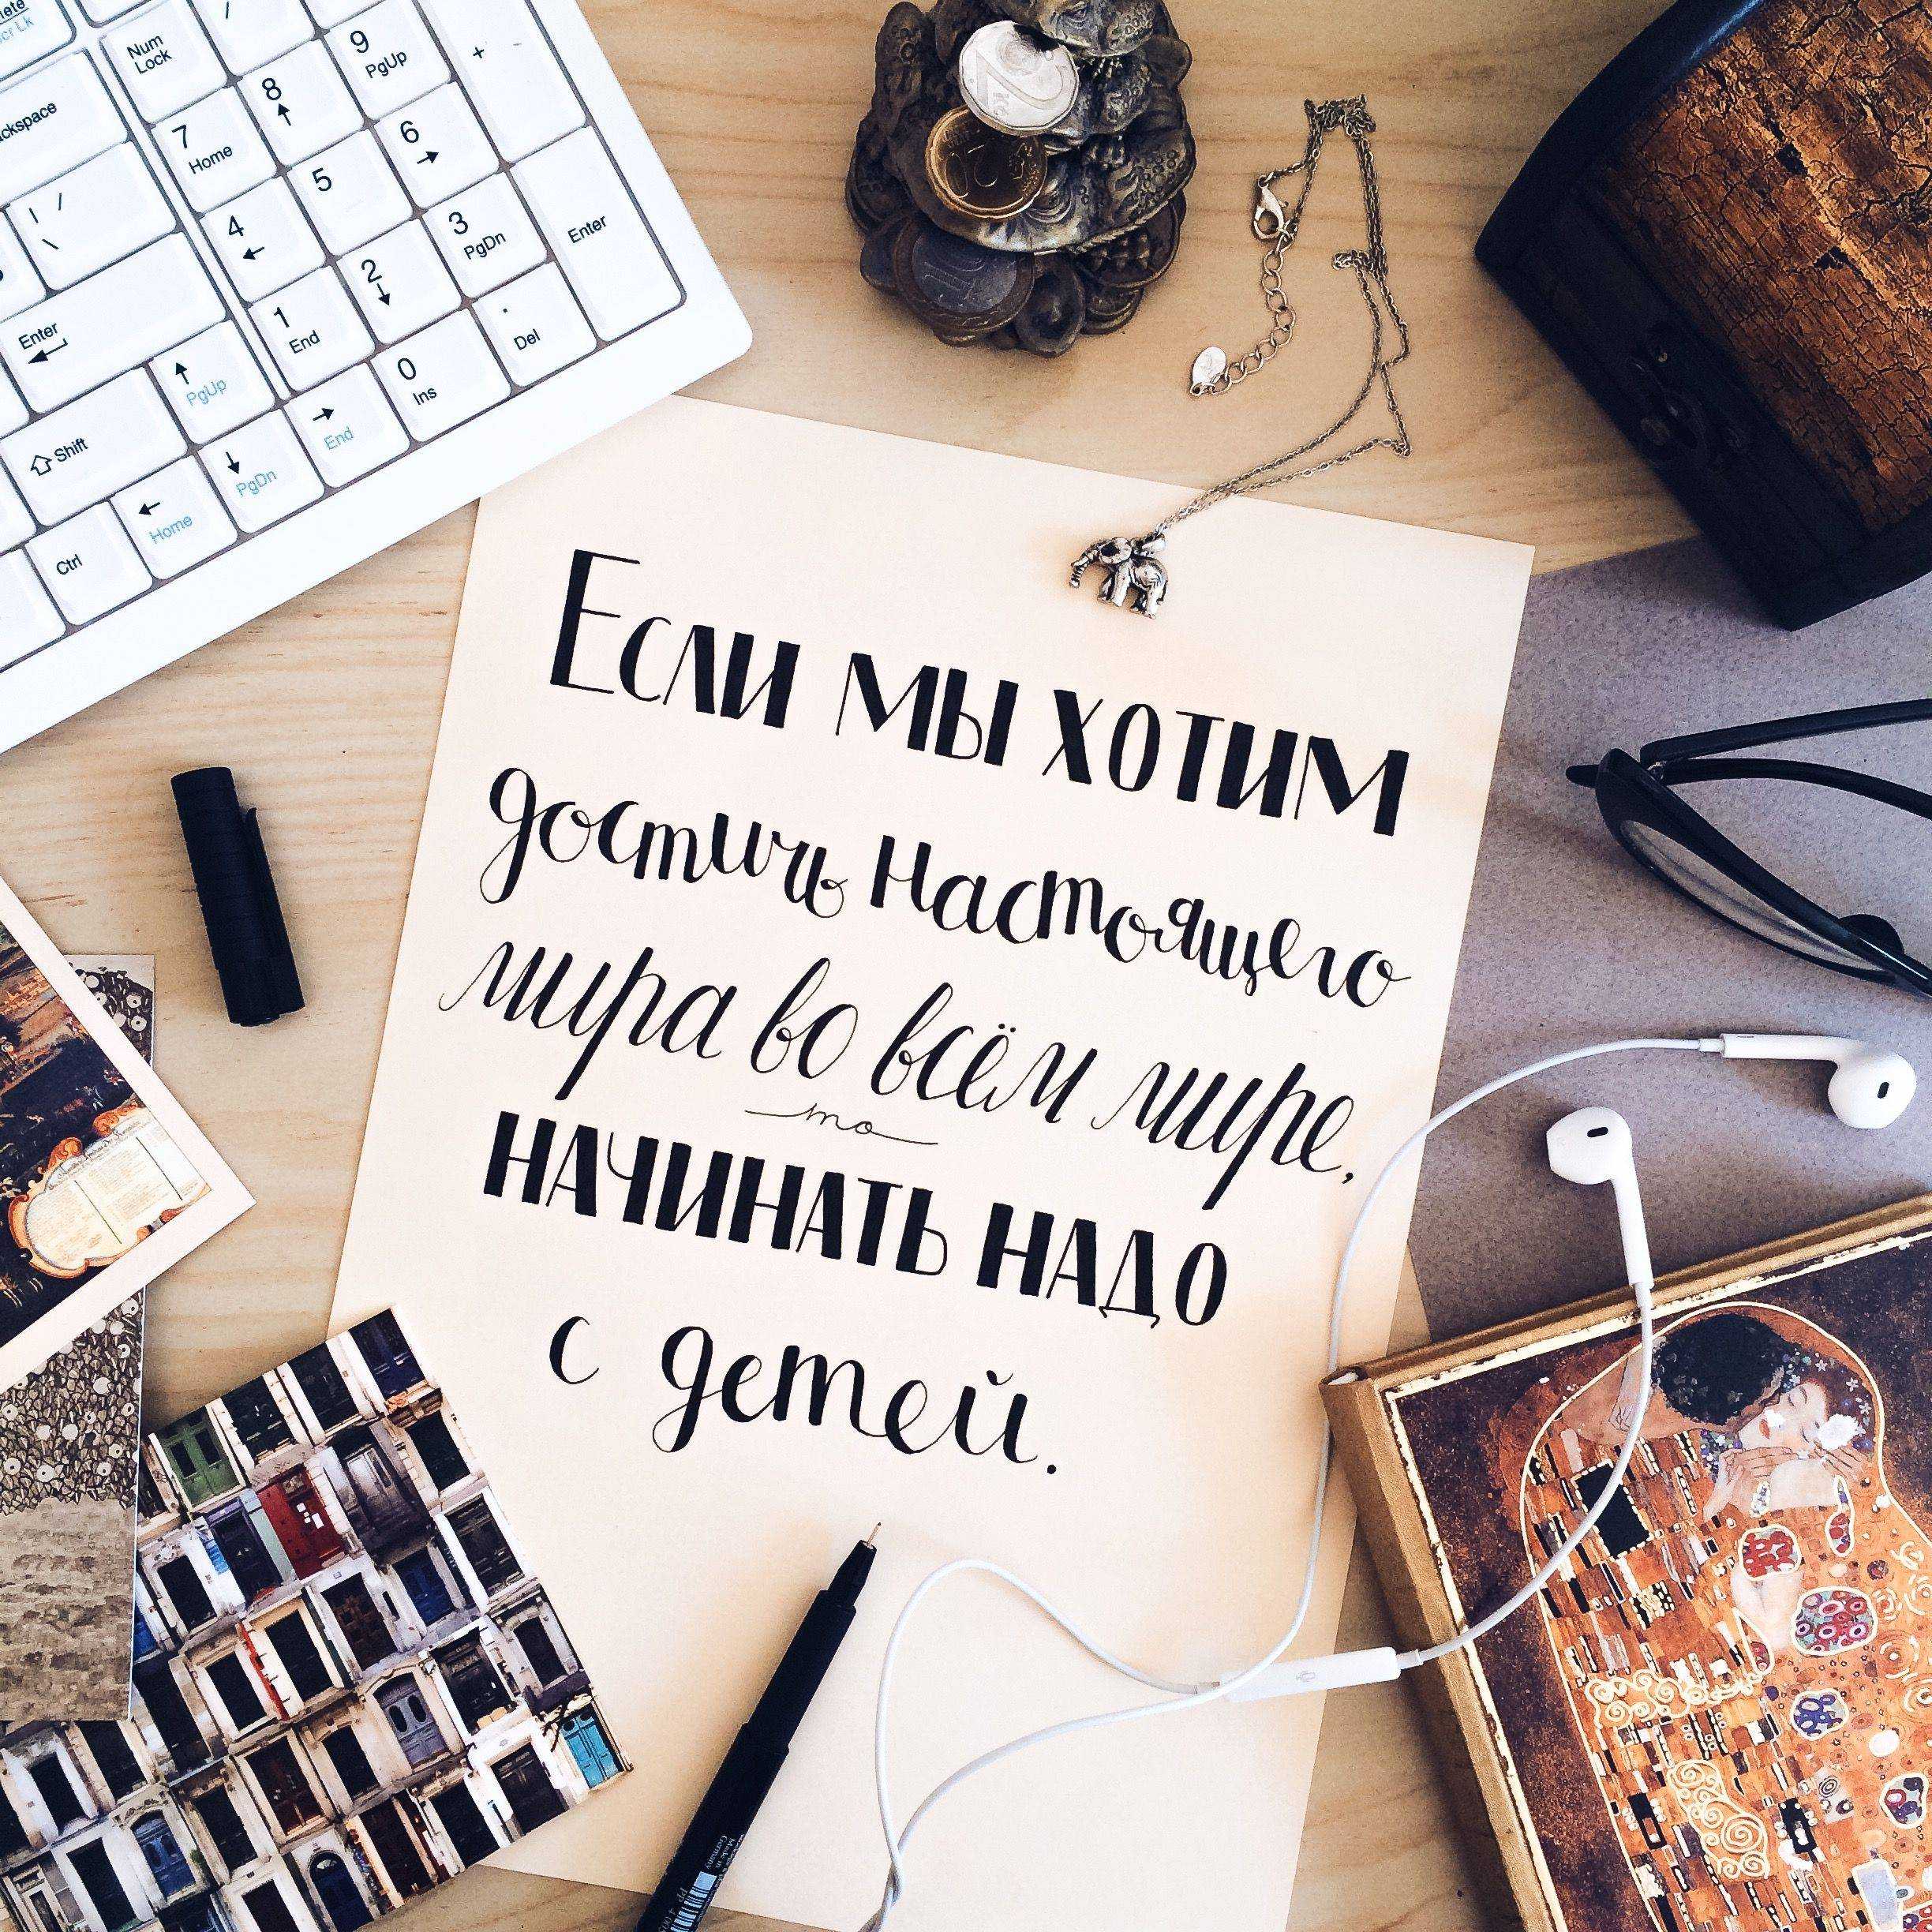 lete
Scr Lk
Num
Lock
/
9
PgUp
+
ckspace
7
Home
8
6
5
4
3
PgDn
Enter
| /
\
2
Enter
1
End
.
Del
PgUp
0
Ins
Shift
End
PgDn
Home
Ctrl
2
50
10
Если мы хотим
достичь настоящего
мира во всём мире,
то
начинать надо
с детей.
Made in
Germany